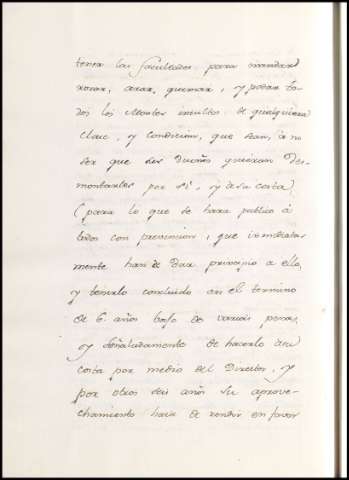 tener las facultades para mandar
rozar, arar, quemar, y podar to-
dos los Montes incultos de qualquiera
clase, y condicion, que sean, à no
ser que sus Dueños quieran Des-
montarles por sí, y de su costa,
(para lo que se hará publico à
todos con prevencion, que immediata-
mente han de Dar principio a ello,
y tenerlo concluido en el termino
de 6. años bajo de varias penas,
y señaladamente de hacerlo a su
costa por medio del Director, y
por otros seis años su aprove-
chamiento havia de rendir en favor